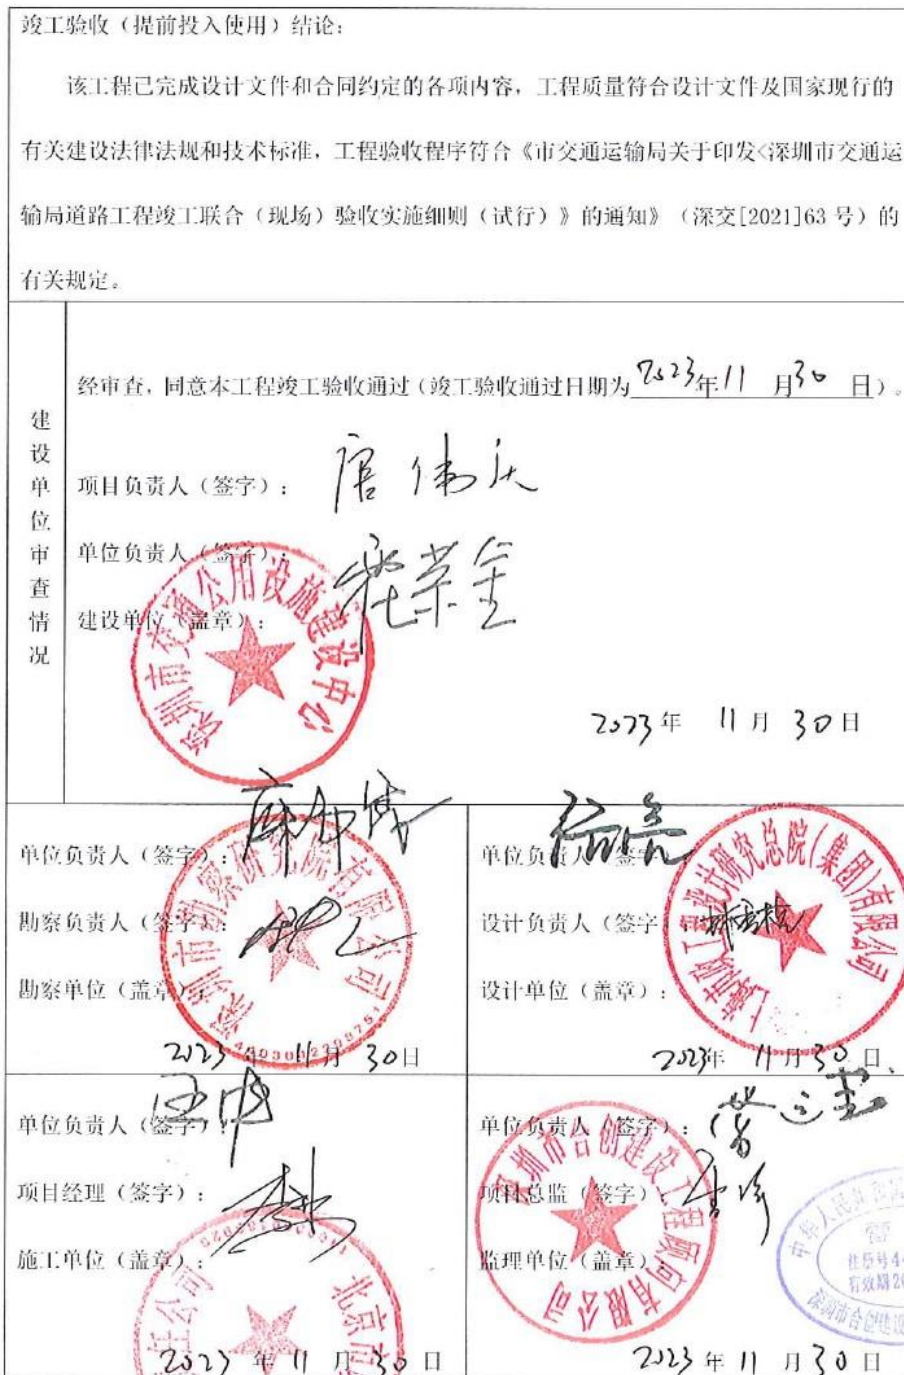 竣工验收（提前投入使用）结论：
该工程已完成设计文件和合同约定的各项内容，工程质量符合设计文件及国家现行的
有关建设法律法规和技术标准，工程验收程序符合《市交通运输局关于印发<深圳市交通运
输局道路工程竣工联合（现场）验收实施细则（试行）》的通知》（深交[2021]63号）的
有关规定。
建设单位审查情况
经审查，同意本工程竣工验收通过（竣工验收通过日期为2023年11月30日）。
项目负责人（签字）：
单位负责人（签字）：
建设单位（盖章）：
深圳市交通公用设施建设中心
2023年 11月30日
单位负责人（签字）：
勘察负责人（签字）：
勘察单位（盖章）：
深圳市勘察研究院有限公司
2023年11月30日
单位负责人（签字
设计负责人（签字
设计单位（盖章）：
上海市政工程设计研究总院（集团）有限公司
2023年 11月30日
单位负责人（签字）：
项目经理（签字）：
施工单位（盖章）：
北京市
任公司
2023年11月30日
单位负责人（签字）：
项目总监（签字）：
监理单位（盖章）：
深圳市合创建设工程顾问有限公司
中华人民共和国
注册号44
有效期20
深圳市合创建设
2023年11月30日